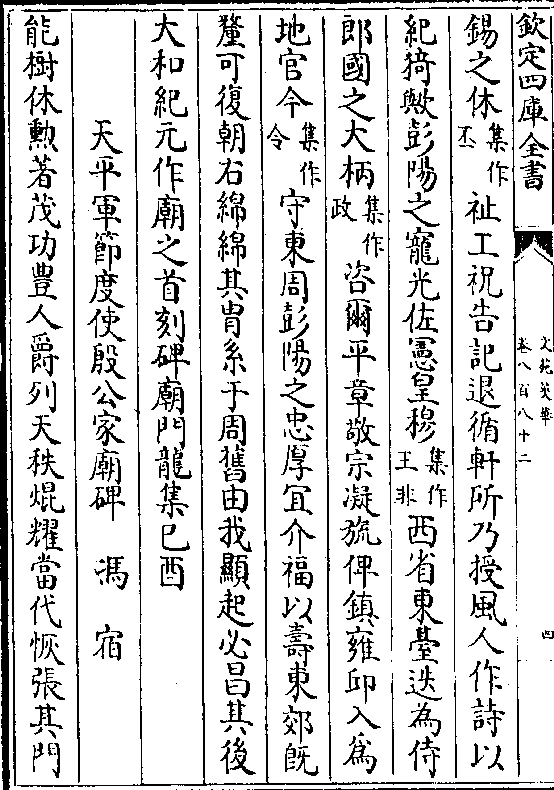 欽定四庫全書
文苑英華
卷八百八十二
四
錫之休集作丕祉工祝告記退循軒所乃授風人作詩以
紀猗歟彭陽之寵光佐憲皇穆集作王非西省東臺迭為侍
郎國之大柄集作政咨爾平章敬宗凝旒俾鎮雍邱入為
地官今集作令守東周彭陽之忠厚宜介福以壽東郊既
釐可復朝右綿綿其胄系于周舊由我顯起必昌其後
大和紀元作廟之首刻碑廟門龍集已酉
天平軍節度使殷公家廟碑 馮宿
能樹休勲著茂功豊人爵列天秩焜耀當代恢張其門